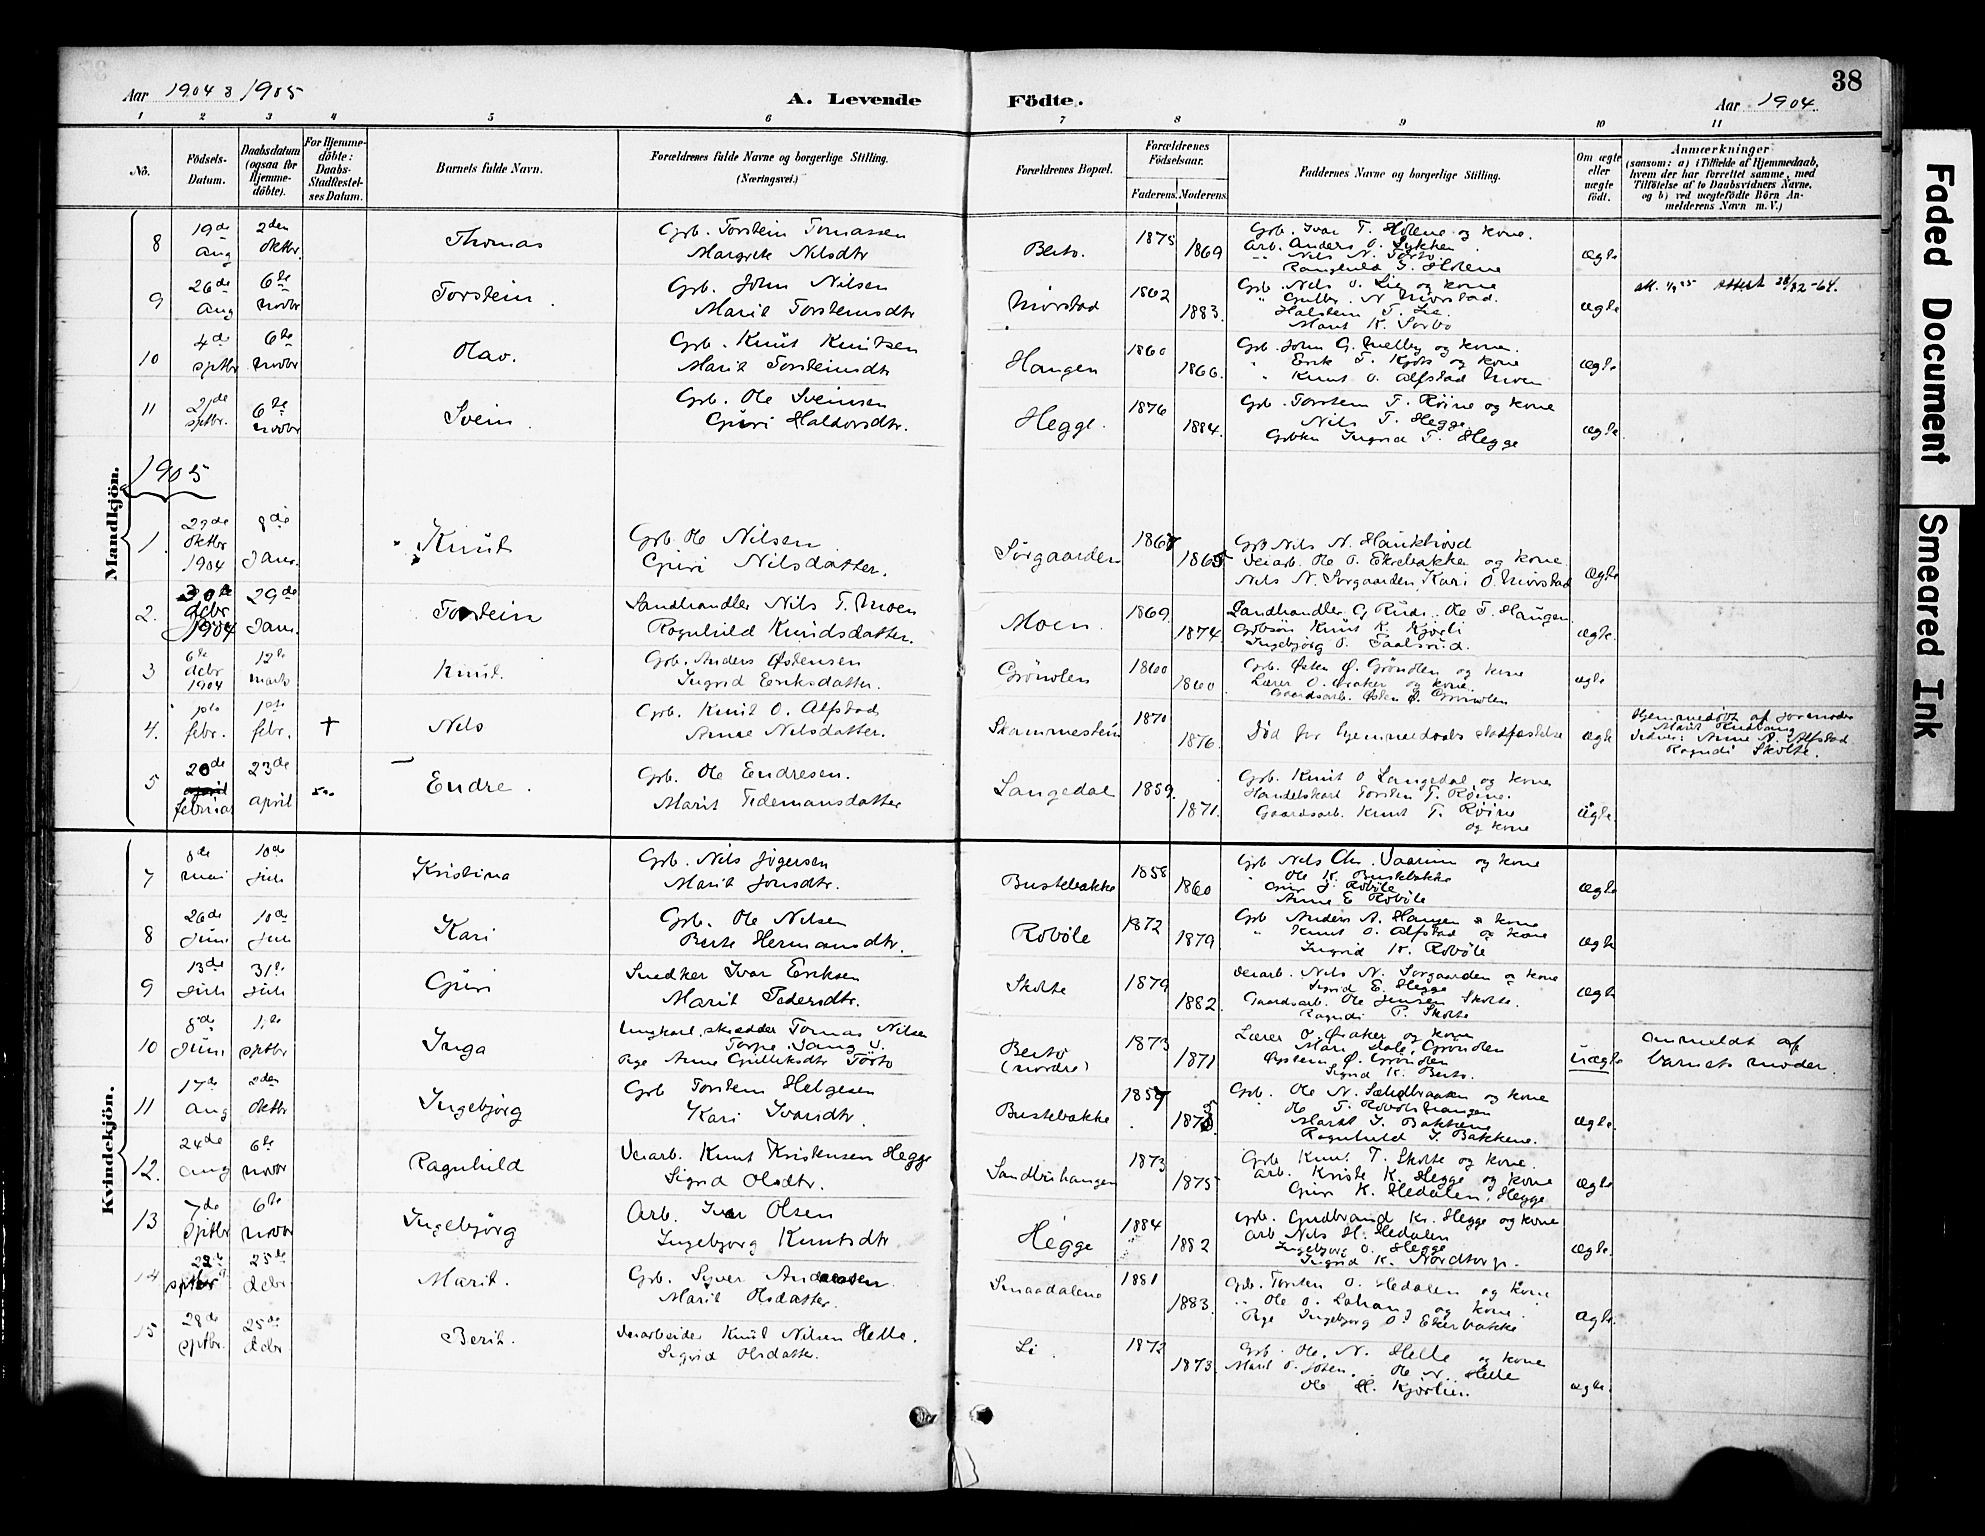 38
Aar 1904 & 1905
A. Levende Födte.
Aar 1904.
1 2 3 4 5 6 7 8 9 10 11
No.
Födsels-Datum.
Daabsdatum (ogsaa för Hjemme-döbte).
For Hjemme-döbte: Daabs-Stadfæstel-ses Datum.
Barnets fulde Navn.
Forældrenes fulde Navne og borgerlige Stilling. (Næringsvei.)
Forældrenes Bopæl.
Forældrenes Födselsaar.
Faderens. Moderens.
Faddernes Navne og borgerlige Stilling.
Om ægte eller uægte födt.
Anmærkninger
(saasom: a) i Tilfælde af Hjemmedaab,
hvem der har forrettet samme, med
Tilföielse af to Daabsvidners Navne,
og b) ved uægtefödte Börn An-
melderens Navn m. V.)
Mandkjön.
8 19de aug 2den oktbr Thomas
Grb. Torstein Tomassen
Margrete Nilsdtr
Berto. 1875 1869
Grb. Ivar T. Holene og kone.
Arb. Anders O. Lykken
" Nils N. Torto
Ragnhild T. Holene
ægte
9 26de aug 6te novbr Torstein.
Grb. John Nilsen
Marit Torsteinsdtr
Morstad 1862 1883.
Grb. Nils O. Lie og kone
" Gulbr. N. Morstad.
Halstein T. Lie.
Marit K. Sorbo
ægte
10 4de sptbr 6te novbr Olav.
Grb. Knut Knutsen
Marit Torsteinsdtr
Haugen 1860 1866.
Grb. John G. Melby og kone.
" Erik T. Kjøs og kone
" Knut O. Alfstad Moen
ægte
11 21de sptbr. 6te novbr Svein.
Grb. Ole Sveinsen
Guri Haldorsdtr.
Hegge. 1876 1884.
Grb. Torstein T. Røine og kone
Nils T. Hegge
Ingrid T. Hegge
ægte.
1905
1. 27de oktbr 1904 8de Janr. Knut
Grb. Ole Nilsen
Guri Nilsdatter.
Sørgaarden 1865
Grb Nils N. Haukliord
Veiarb. Ole O. Ekrebakke og kone
Nils N. Sørgaarden, Kari O. Morstad
ægte
2. 30te debr 1904 29de Janr. Torstein
Landhandler Nils T. Moen
Ragnhild Knudsdatter.
Moen. 1869 1874.
Landhandler G Rudi. Ole T. Haugen
Grbsøn Knut K. Kjøsli
Ingebjörg O. Taalsrud.
ægte.
3 6te debr 1904 12te marts Knut.
Grb. Anders Østensen
Ingrid Eriksdatter.
Grönolen 1860 1860
Grb. Østen Ø. Grönolen og kone
Lærer O. Øraker og kone.
Gaardsarb. Østen Ø. Grönolen
ægte
4. 1ste febr. 1ste febr. + Nils
Grb. Knut O. Alfstad
Anne Nilsdatter.
Skammestein 1870 1876.
Död før hjemmedaabs stadfæstelse
ægte
Hjemmedöbt af Jormoder
Vidner: Anne N. Alfstad
Ragndi Skolte.
5 20de februar 23de april Endre.
Grb. Ole Endresen.
Marit Tidemansdatter
Langedal 1859 1871.
Grb. Knut O Langedal og kone
Handelskarl Torsten T. Røine.
Gaardsarb. Knut T. Røine
og kone
ægte.
Kvindekjön.
7 8de mai 10de Juli Kristina
Grb. Nils Jögersen
Marit Jonsdtr.
Bustebakke 1858 1860
Grb Nils Chr. Vaarum og kone
" Ole K. Bustebakke
Guri J. Robøle
Anne E Robøle
ægte
8 26de Juni 10de Juli Kari
Grb. Ole Nilsen
Berte Hermansdtr.
Robøle 1872 1879.
Grb Anders A. Haugen & kone
" Knut O. Alfstad og kone
Ingrid K. Robøle
ægte
9 13de Juli 31te Juli Guri
Snedker Ivar Eriksen
Marit Pedersdtr.
Skolte 1879 1882.
Veiarb. Nils N. Sørgaarden og kone
Sigrid E. Hegge
Gaardsarb. Ole Jensen Skolte.
Ragndi P. Skolte
ægte
10 8de Juni 1.te sptbr Inga
Ungkarl, skrædder Tomas Nilsen
Pige Anne Gulliksdtr Torto
Berto (nordre) 1873 1871
Lærer O. Øraker og kone
Mari Grönolen
Øystein Ø. Grönolen
Sigrid K. Berto.
uægte
anmeldt af
barnets moder.
11 17de aug 2den oktbr Ingebjörg
Grb Torstein Helgesen
Kari Ivarsdtr.
Bustebakke
Grb. Ole N. og kone
" Ole T. Robölshaugen
Marit I. Bakkene
Ragnhild I. Bakkene.
ægte.
12. 24de aug 6te novbr Ragnhild
Veiarb. Knut Kristensen Hegge
Sigrid Olsdtr.
Sandbuhaugen 1873 1875
Grb Knut T. Skolte og kone.
Arb. Kriste K. Hegge og kone
Guri K. Hedalen, Hegge
ægte
13 7de sptbr 6te novbr Ingebjörg
Arb. Ivar Olsen
Ingeborg Knutsdtr
Hegge 1884 1882
Grb. Gudbrand Kr. Hegge og kone
Arb Nils H. Hedalen
Ingebjorg O. Hegge
Ingrid K. Nordtorp.
ægte.
14 sptbr 25de debr Marit.
Grb. Syver Andersen.
Marit Olsdatter.
Smaadalene 1881 1883.
Grb. Torsten O. Hedalen og kone
" Ole O. Lohaug og kone.
Pige Ingebjorg O. Ekerbakke
ægte.
15 28de sptbr. 25de debr Berit.
Veiarbeider Knut Nilsen Helle.
Sigrid Olsdatter.
Li. 1872 1873.
Grb. Ole. N. Helle og kone
Marit O. Ole N. Helle
Ole H. Kjörlien.
ægte.
Faded Document
Smeared Ink